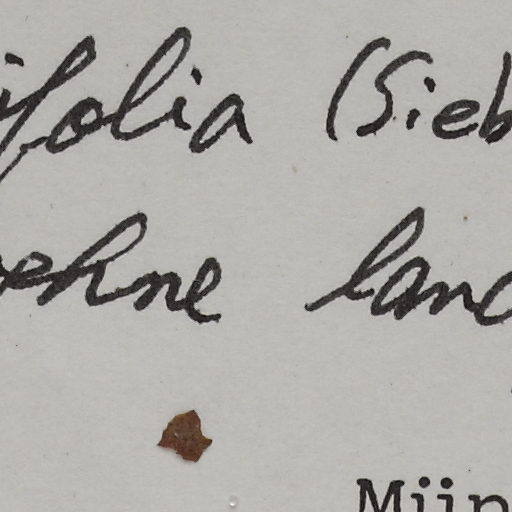 ifolia (Sieb
oehne lanc
Mün